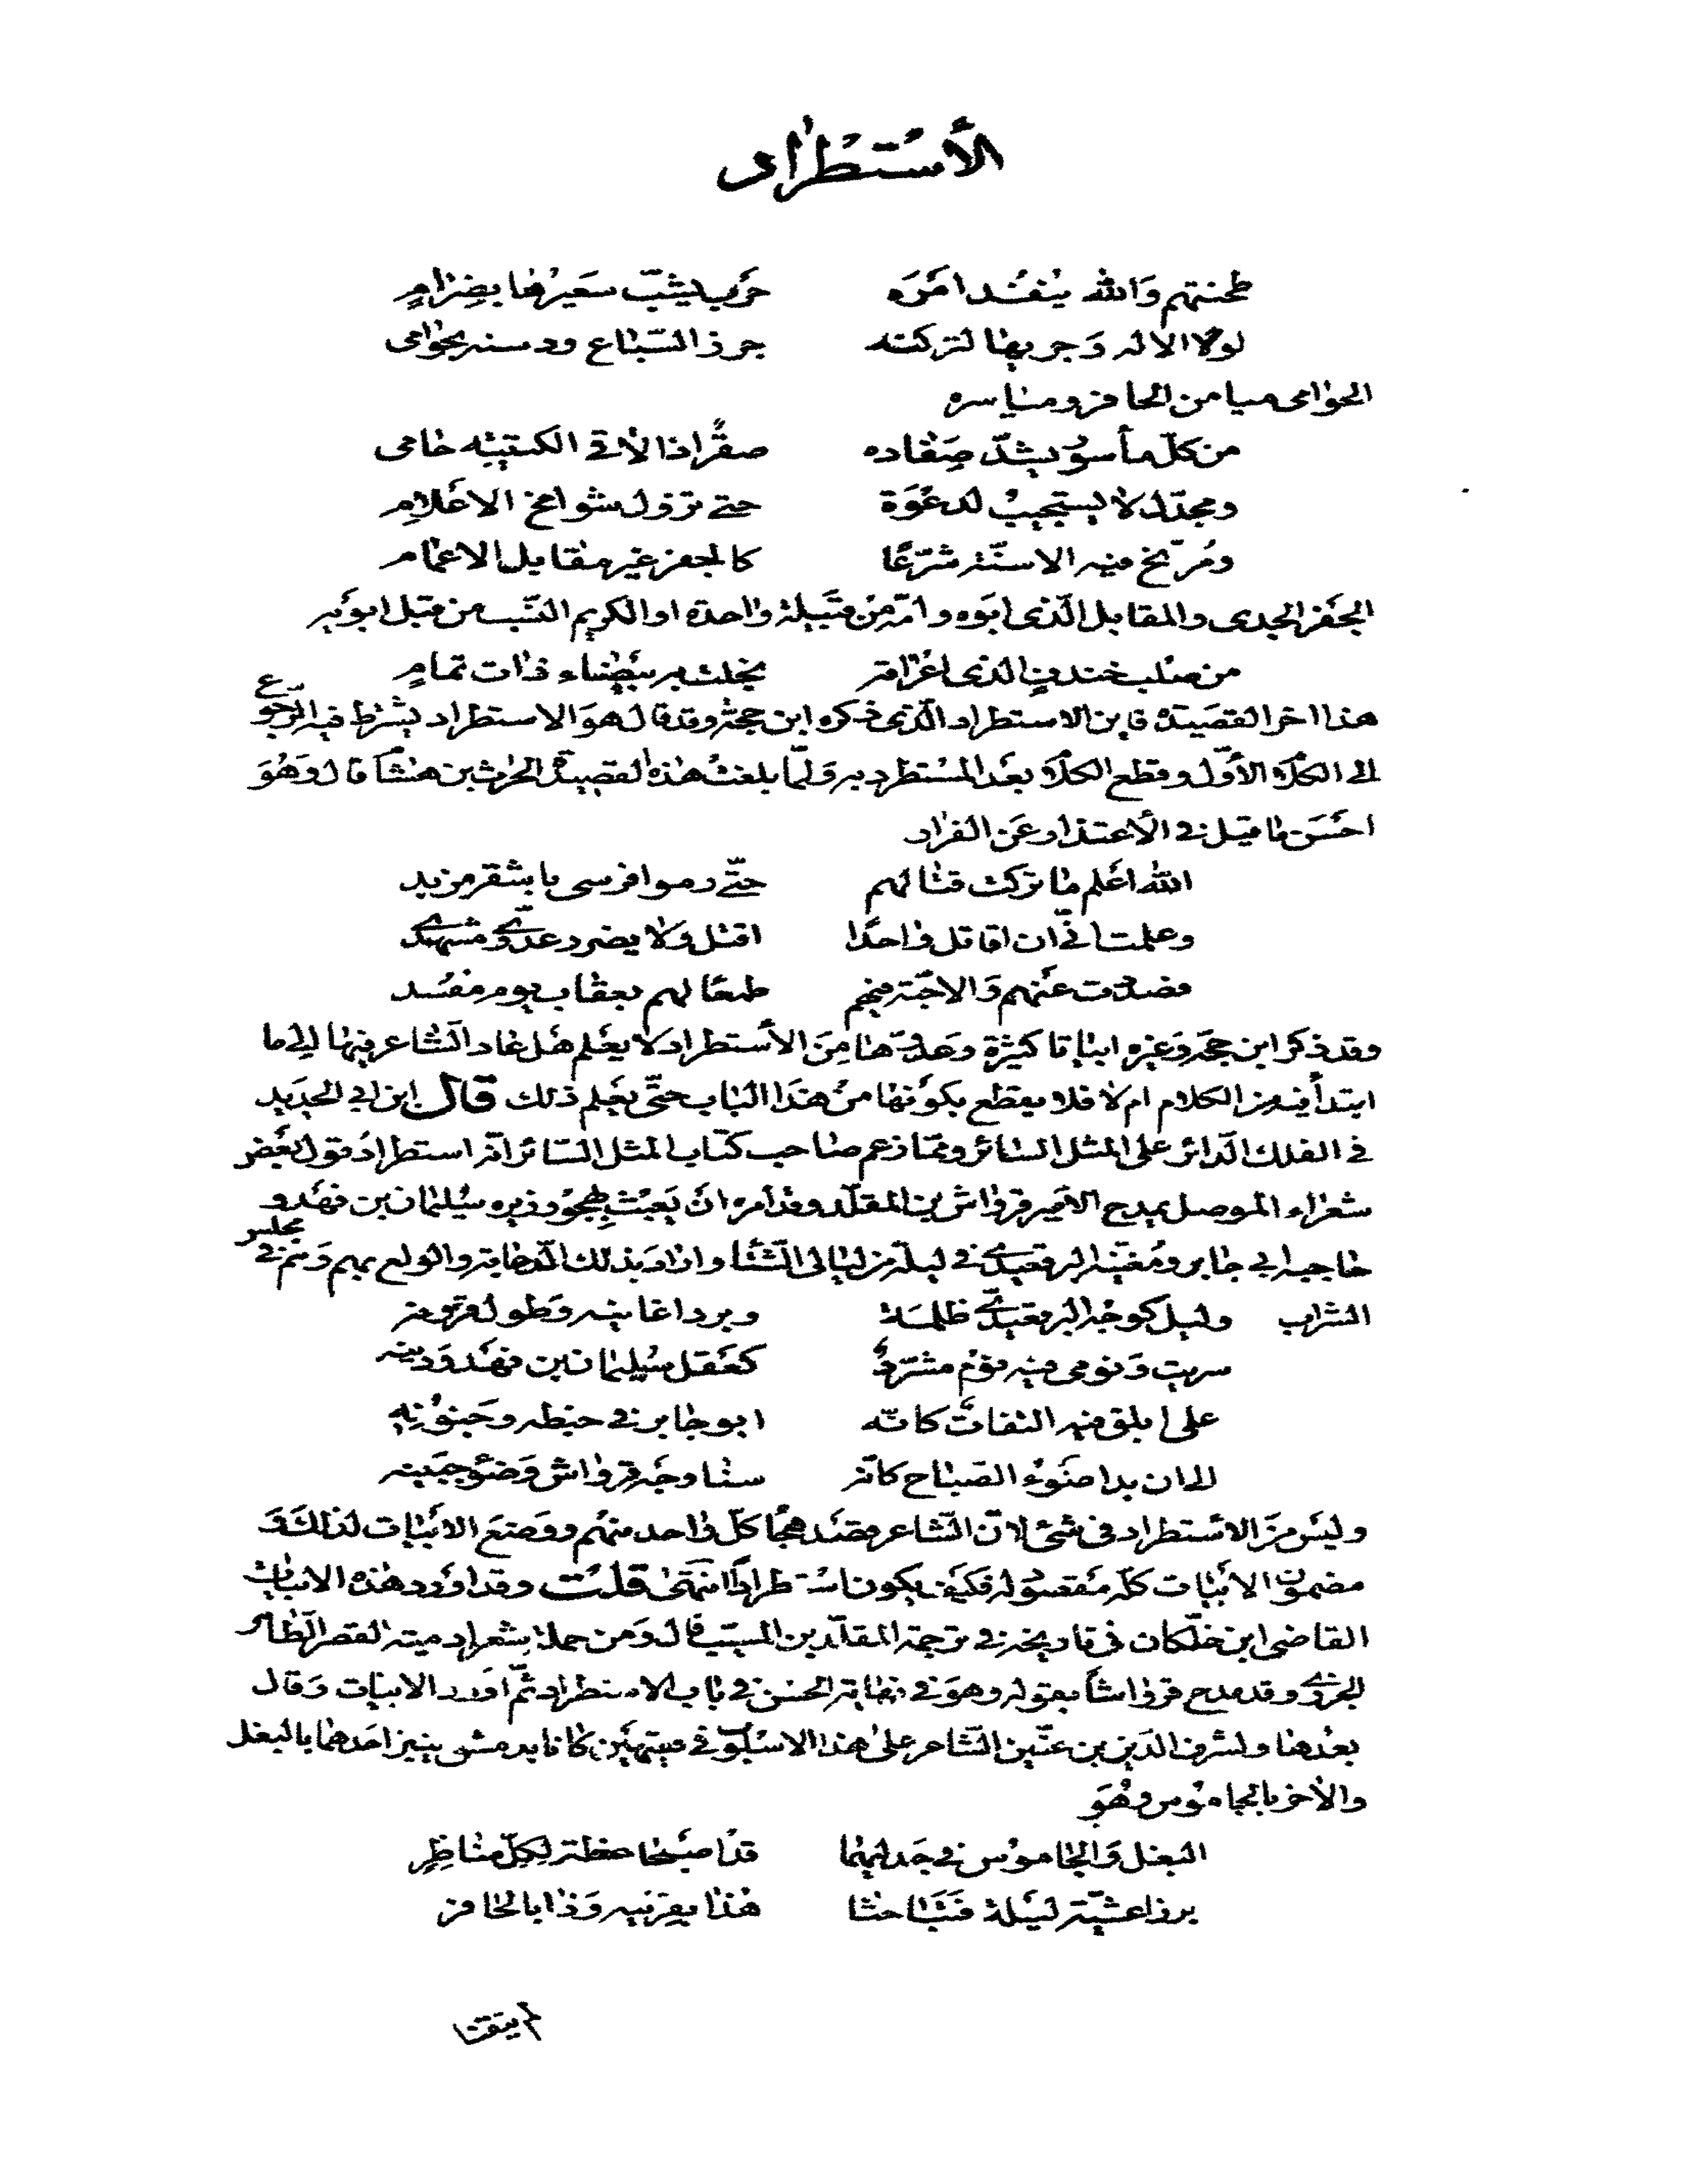 الأستطراد
طحنتهم والله ينفذ امره حرب يشبّ سعيرها بضرام
لولا الاله وجريها لتركنه جزر السّباع ودسنه بحوامى
الحوامى ميامن الحافر ومياسره
من كلّ مأسور يشدّ صفاده صقر اذا لاقى الكتيبه حامى
ومجدّل لا يستجيب لدعوة حتى تزول شوامخ الاعلام
ومرنّخ فيه الاسنّة شرّعا كالجفر غير مقابل الاعمام
الجفر الجدى والمقابل الّذى ابوه وامّه من قبيلة واحدة او الكريم النّسب من قبل ابويه
من صلب خندف الذى اعراقه نجلت به بيضاء ذات تمام
هذا اخر القصيدة فاين الاستطراد الّذى ذكره ابن حجة وقد قال هو الاستطراد يشترط فيه الرّجوع
الى الكلام الأوّل وقطع الكلام بعد المستطرد به ولمّا بلغت هذه القصيدة الحرث بن هشام قال وهو
احسن ما قيل فى الأعتذار عن الفرار
الله اعلم ما تركت قتالهم حتّى رموا فرسى باشقر مزبد
وعلمت انّى ان اقاتل واحدا اقتل ولا يضرر عدوّى مشهدى
فصددت عنهم والاحبّة فيهم طمعا لهم بعقاب يوم مفسد
وقد ذكر ابن حجّة وغيره ابياتا كثيرة وعدّوها من الأستطراد لا يعلم هل عاد الشّاعر فيها الى ما
ابتدأ فيه من الكلام ام لا فلا يقطع بكونها من هذا الباب حتّى يعلم ذلك قال ابن ابى الحديد
فى الفلك الدّائر على المثل السّائر وممّا زعم صاحب كتاب المثل السّائر انّه استطراد قول بعض
شعراء الموصل يمدح الامير قرواش بن المقلّد وقد أمره ان يعبث بهجو وزيره سليمان بن فهد و
حاجبه ابى جابر ومغنّيه البرقعيدى فى ليلة من ليالى الشّتا واراد بذلك الدّعابة والولع بهم وهم فى مجلس
الشراب وليل كوجه البرقعيدىّ ظلمة وبرد اغانيه وطول قرونه
سريت ونومى فيه نوم مشرّد كعقل سليمان بن فهد ودينه
على ابلق فيه التفات كانّه ابو جابر فى خبطه وجنونه
الى ان بدا ضوء الصّباح كانّه سنا وجه قرواش وضوء جبينه
وليس من الاستطراد فى شئ لانّ الشّاعر قصد هجا كلّ واحد منهم ووضع الأبيات لذلك و
مضمون الأبيات كلّه مقصود له فكيف يكون استطرادا انتهى قلت وقد اورد هذه الابيات
القاضى ابن خلّكان فى تاريخه فى ترجمة المقلّد بن المسيّب قال ومن جملة شعراء دمية القصر الطّاهر
الجزرى وقد مدح قرواشا بقوله وهو فى نهاية الحسن فى باب الاستطراد ثمّ اورد الابيات وقال
بعدها ولشرف الدّين بن عنّين الشّاعر على هذا الاسلوب فى فقيهين كانا بدمشق ينبز احدهما بالبغل
والاخر بالجاموس وهو
البغل والجاموس فى جدليهما قد اصبحا عظة لكلّ مناظر
برزا عشيّة ليلة فتباحثا هذا بقرنيه وذا بالحافر